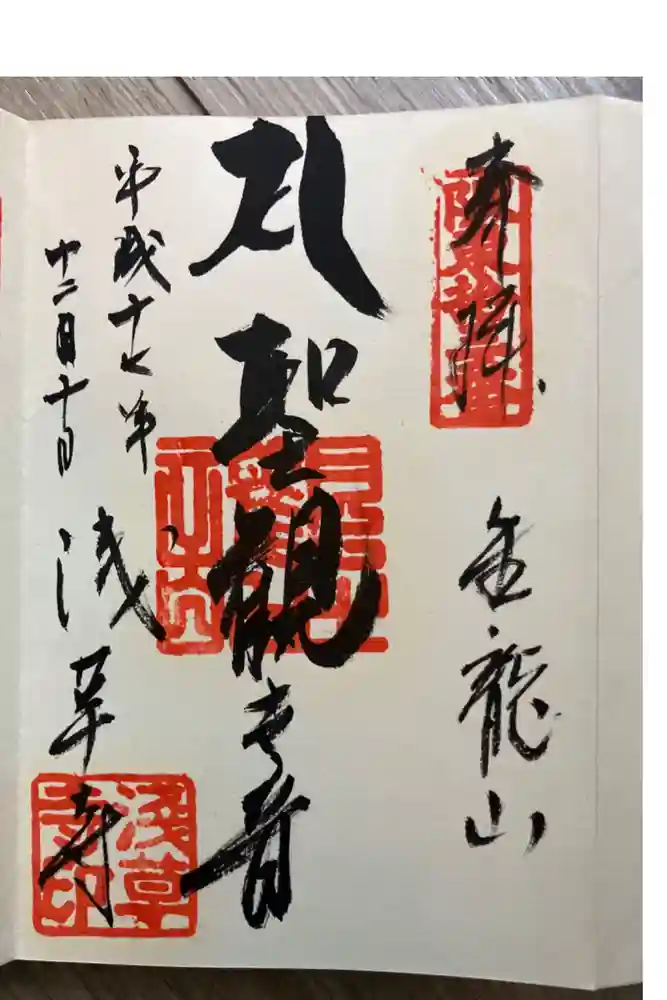 奉拝
金龍山
聖観世音
平成十七年
十二月十日
浅草寺
浅草寺印